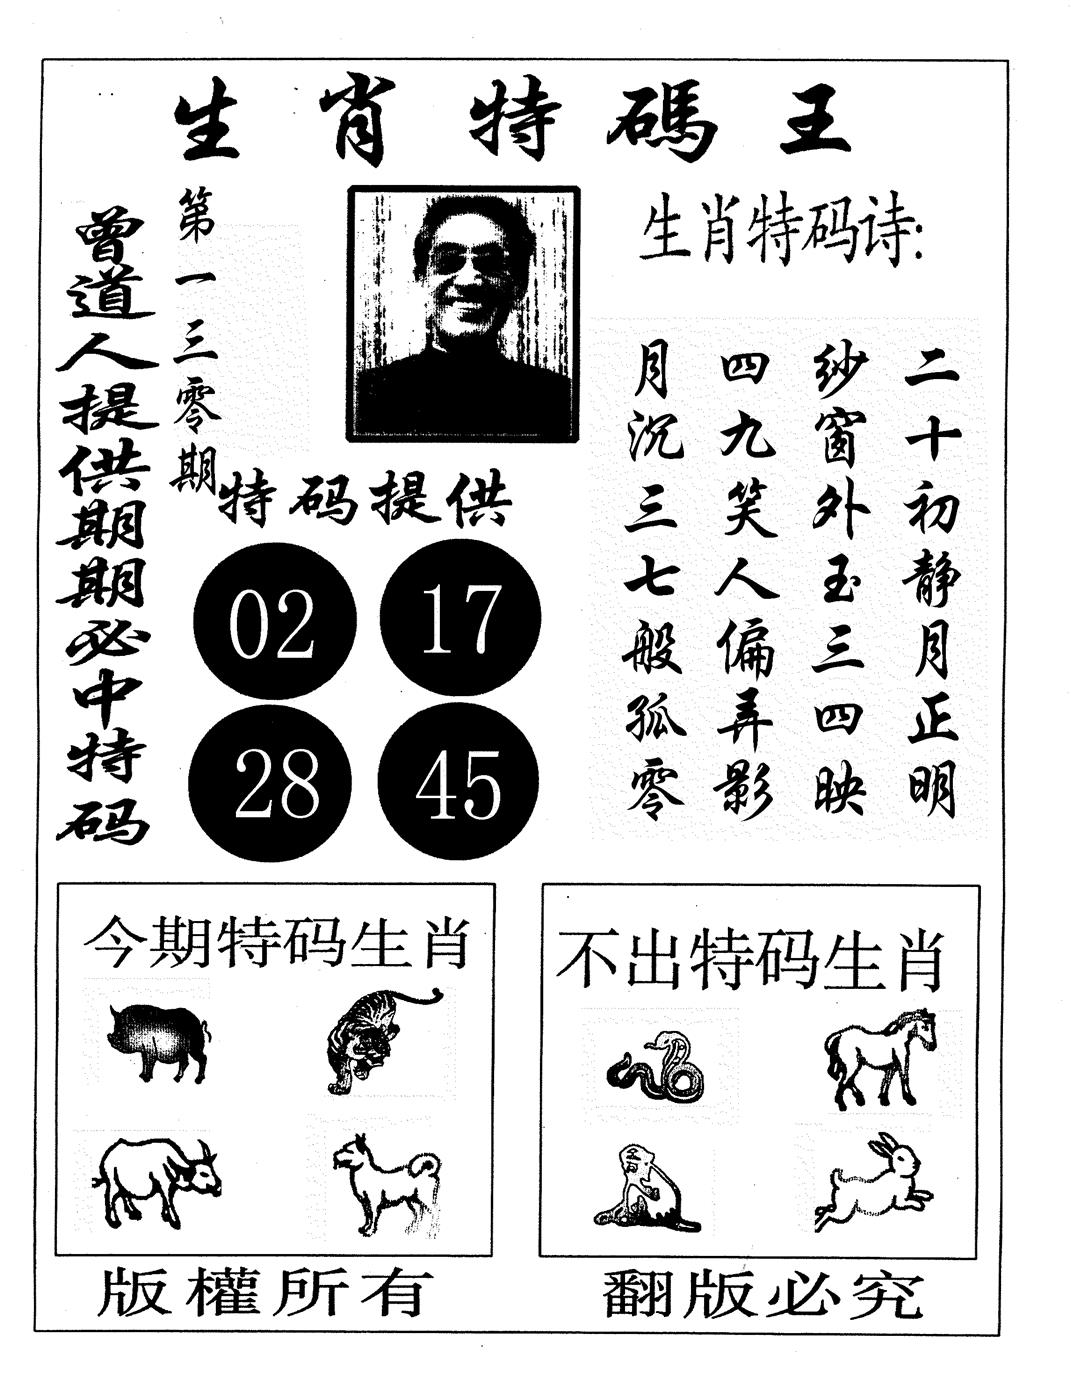 生肖特碼王
曾道人提供期期必中特码
第一三零期
生肖特码诗:
二十初静月正明
纱窗外玉三四映
四九笑人偏弄影
月沉三七般孤零
特码提供
02 17
28 45
今期特码生肖
不出特码生肖
版權所有
翻版必究